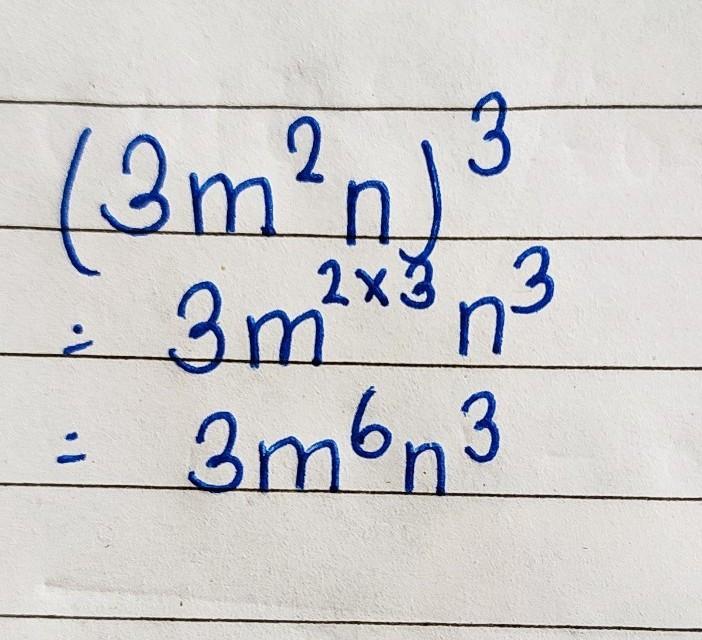 (3m²n)³
= 3m²ˣ³ n³
= 3m⁶n³